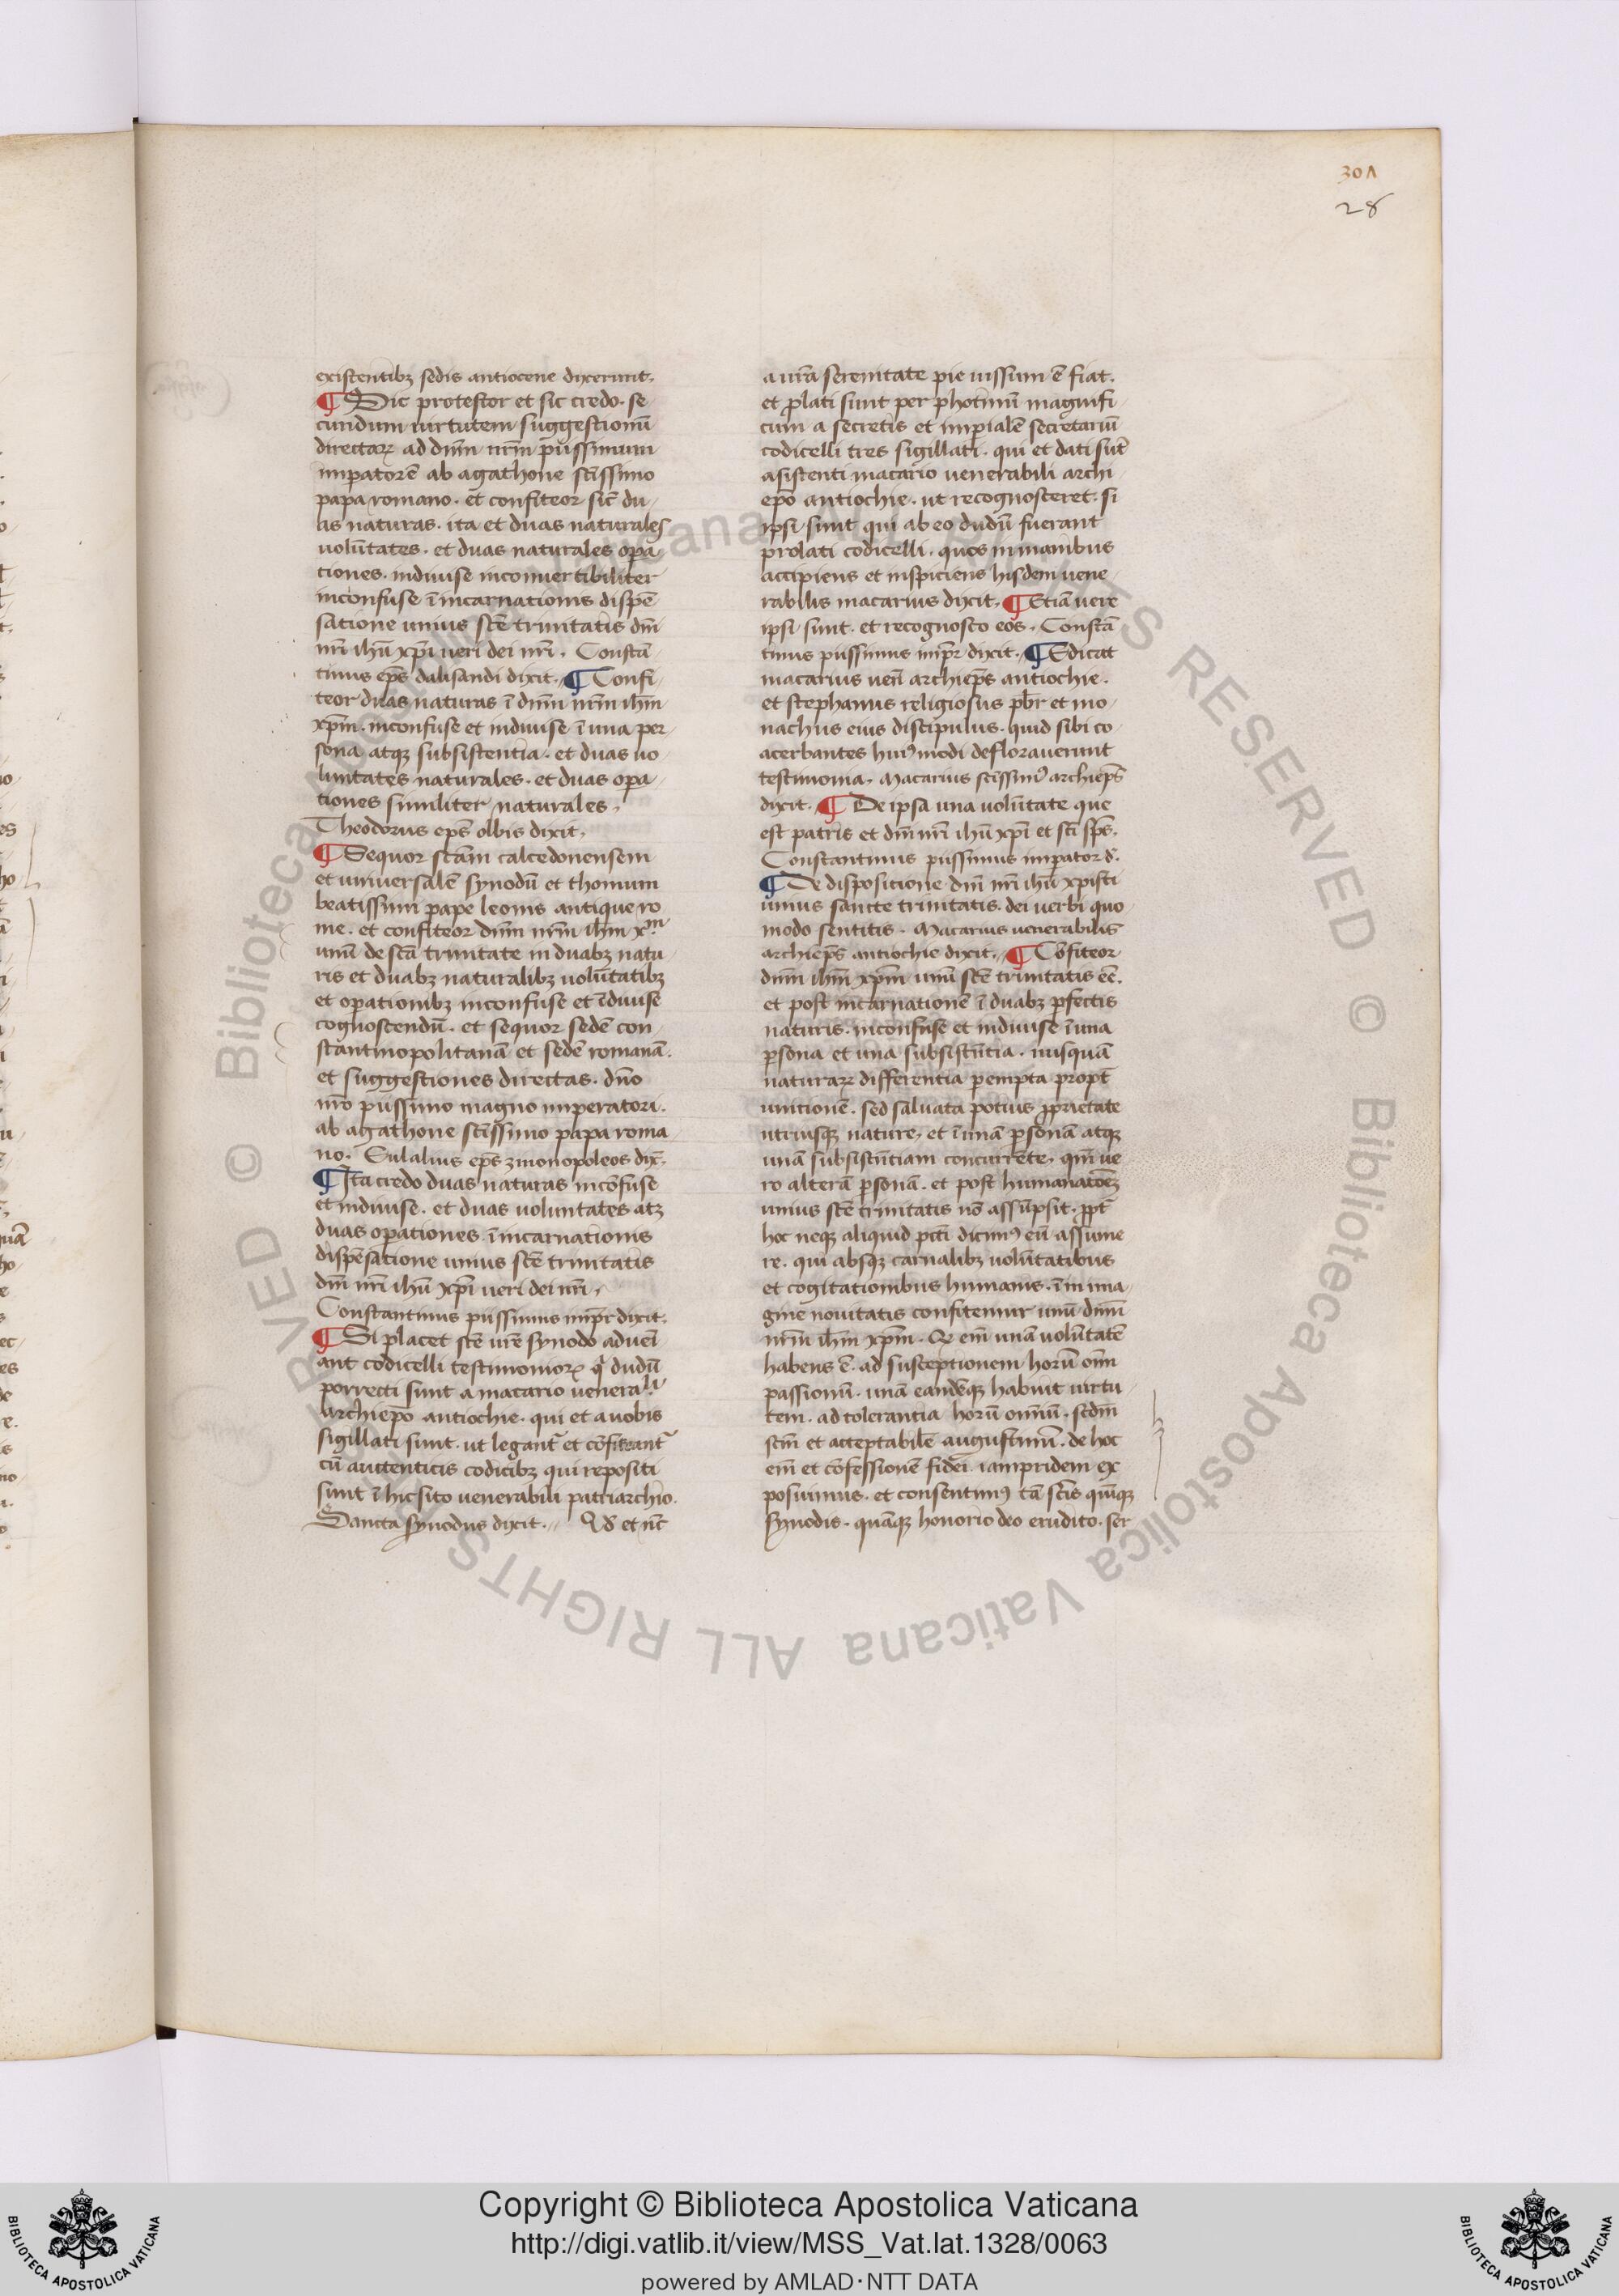 301
28
existentibꝫ sedis antiocene dixerunt.
¶ Sic protestor et sic credo. se
cundum uirtutem suggestionū
directaꝝ ad dnm̄ nrm̄ piissimum
impatorē ab agathone sc̄issimo
papa romano. et confiteor sic̄ du
as naturas. ita et duas naturales
volūtates. et duas naturales opa
tiones. indiuise inconuertibiliter
inconfuse ī incarnationis dispē
satione unius scē trinitatis dm̄
nr̄i ihū xp̄i ueri dei nr̄i. Constā
tinus ep̄s dalisandi dixit. ¶ Confi
teor duas naturas ī dnm̄ nrm̄ ihm̄
xp̄m. inconfuse et indiuise ī una per
sona atqꝫ subsistentia. et duas uo
luntates naturales. et duas opa
tiones similiter naturales.
Theodorus ep̄s olbis dixit.
¶ Sequor sc̄am calcedonensem
et uniuersalē synodū et thomum
beatissimi pape leonis antique ro
me. et confiteor dnm̄ nrm̄ ihm̄ xᵐ
unū de scā trinitate in duabꝫ natu
ris et duabꝫ naturalibꝫ volūtatibꝫ
et opationibꝫ inconfuse et īdiuise
cognoscendū. et sequor sedē con
stantinopolitanā et sedē romanā.
et suggestiones directas. dn̄o
nr̄o piissimo magno imperatori.
ab agathone sc̄issimo papa roma
no. Eulalius ep̄s zinonopoleos dix̄.
¶ Ita credo duas naturas incōfuse
et indiuise. et duas uoluntates atꝫ
duas opationes ī incarnationis
dispēsatione unius scē trinitatis
dm̄ nr̄i ihū xp̄i ueri dei nr̄i.
Constantinus piissimus imp̄r dixit.
¶ Si placet scē ur̄e synodo adueī
ant codicelli testimonioꝝ q̄ dudū
porrecti sunt a macario uenerali
archiepō antiochie. qui et a uobis
sigillati sunt. ut legant᷑ et cōferant᷑
cū autenticis codicibꝫ qui repositi
sunt ī hicsito uenerabili patriarchio.
Sancta synodus dixit. Qd̄ et nc̄
a ur̄a serenitate pie iussum ē fiat.
et plati sunt per photinū magnifi
cum a secretis et impialē secretariū
codicelli tres sigillati. qui et dati sūt
asistenti macario uenerabili archi
epō antiochie. ut recognosceret. si
ipsi sunt qui ab eo dudū fuerant
prolati codicelli. quos in manibus
accipiens et inspiciens hisdem uene
rabilis macarius dixit. ¶ Etiā uere
ipsi sunt. et recognosco eos. Constā
tinus piissimus imp̄r dixit. ¶ Edicat
macarius uen̄ archiep̄s antiochie.
et stephanus religiosus pb̄r et mo
nachus eius discipulus. quid sibi co
acerbantes hui᷒modi deflorauerunt
testimonia. Macarius sc̄issim᷒ archiep̄s
dixit. ¶ De ipsa una uolūtate que
est patris et dm̄ nr̄i ihū xp̄i et sc̄i sp̄s.
Constantinus piissimus impator d̄.
¶ De dispositione dm̄ nr̄i ihū xpisti
unius sancte trinitatis. dei uerbi quo
modo sentitis. Macarius uenerabilis
archiep̄s antiochie dixit. ¶ Cōfiteor
dnm̄ ihm̄ xp̄m unū scē trinitatis eē.
et post incarnationē ī duabꝫ pfectis
naturis. inconfuse et indiuise ī una
psona et una subsistētia. nusquā
naturaꝝ differentia pempta propt̄
unitionē. sed saluata potius pprietate
utriusqꝫ nature, et ī unā psonā atqꝫ
unā subsistētiam concurrēte. qm̄ ue
ro alterā psonā. et post humanatōeꝫ
unius scē trinitatis nō assūpsit. ppt̄
hoc neqꝫ aliquid pcti dicim᷒ eū assume
re. qui absqꝫ carnalibꝫ uolūtatibus
et cogitationibus humanis. ī in ima
gine nouitatis confitemur unū dnm̄
nrm̄ ihm̄ xp̄m. Qꝫ em̄ unā uolūtatē
habens ē. ad susceptionem horū om̄
passionū. unā eandēqꝫ habuit uirtu
tem. ad tolerantia horū omniū. scdm̄
scm̄ et acceptabilē augustinū. de hoc
em̄ et cōfessionē fidei iampridem ex
posuimus. et consentim᷒ tā sc̄is quīqꝫ
synodis. quāqꝫ honorio deo erudito. ser
© Biblioteca Apostolica Vaticana ALL RIGHTS RESERVED © Biblioteca Apostolica Vaticana ALL RIGHTS RESERVED
Copyright © Biblioteca Apostolica Vaticana
http://digi.vatlib.it/view/MSS_Vat.lat.1328/0063
powered by AMLAD·NTT DATA
BIBLIOTECA APOSTOLICA VATICANA
BIBLIOTECA APOSTOLICA VATICANA